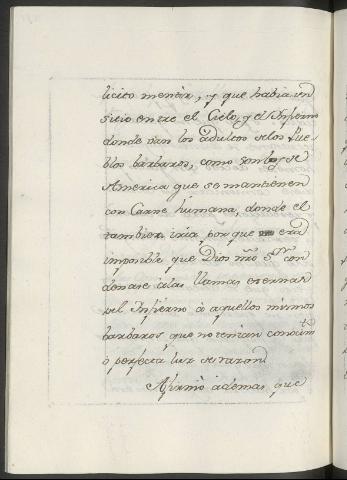 licito mentir, y que habia un
sitio entre el Cielo, y el Infierno
donde van los adultos de los Pue-
blos barbaros, como son los de
America que se mantienen
con Carne humana, donde el
tambien iria, por que era
imposible que Dios nro Sr. con
denase a las llamas eternas
del Infierno à aquellos mismos
barbaros que no tenian conocimto
ò perfecta luz de razon
Afirmò ademas, que